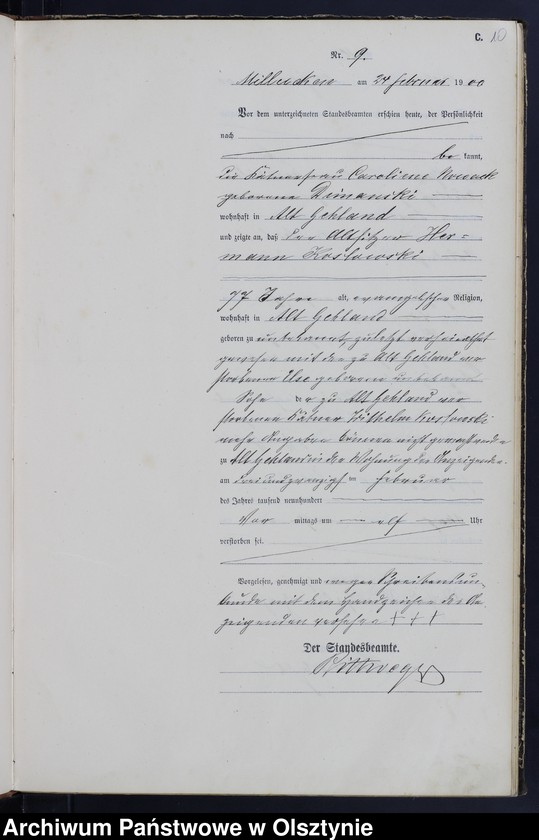 C. 10
Nr. 9.
Milluckau am 24 Februar 1900
Vor dem unterzeichneten Standesbeamten erschien heute, der Persönlichkeit
nach
be kannt,
die Kätnerfrau Caroline Nowack
geborene Dimanski
wohnhaft in Alt Gehland
und zeigte an, daß der Altsitzer Her=
mann Koslowski
77 Jahre alt, evangelischer Religion,
wohnhaft in Alt Gehland
geboren zu unbekannt, zuletzt verheirathet
gewesen mit der zu Alt Gehland ver
storbenen Else geborene unbekannt
Sohn der zu Alt Gehland ver
storbenen Kätner Wilhelm Koslowski
mehr Angaben können nicht gemacht werden
zu Alt Gehland in der Wohnung der Anzeigenden
am dreiundzwanzigsten Februar
des Jahres tausend neunhundert
Vor mittags um elf Uhr
verstorben sei.
Vorgelesen, genehmigt und wegen Schreibensun
kunde mit dem Handzeichen der An
zeigenden versehen + + +
Der Standesbeamte.
Archiwum Państwowe w Olsztynie